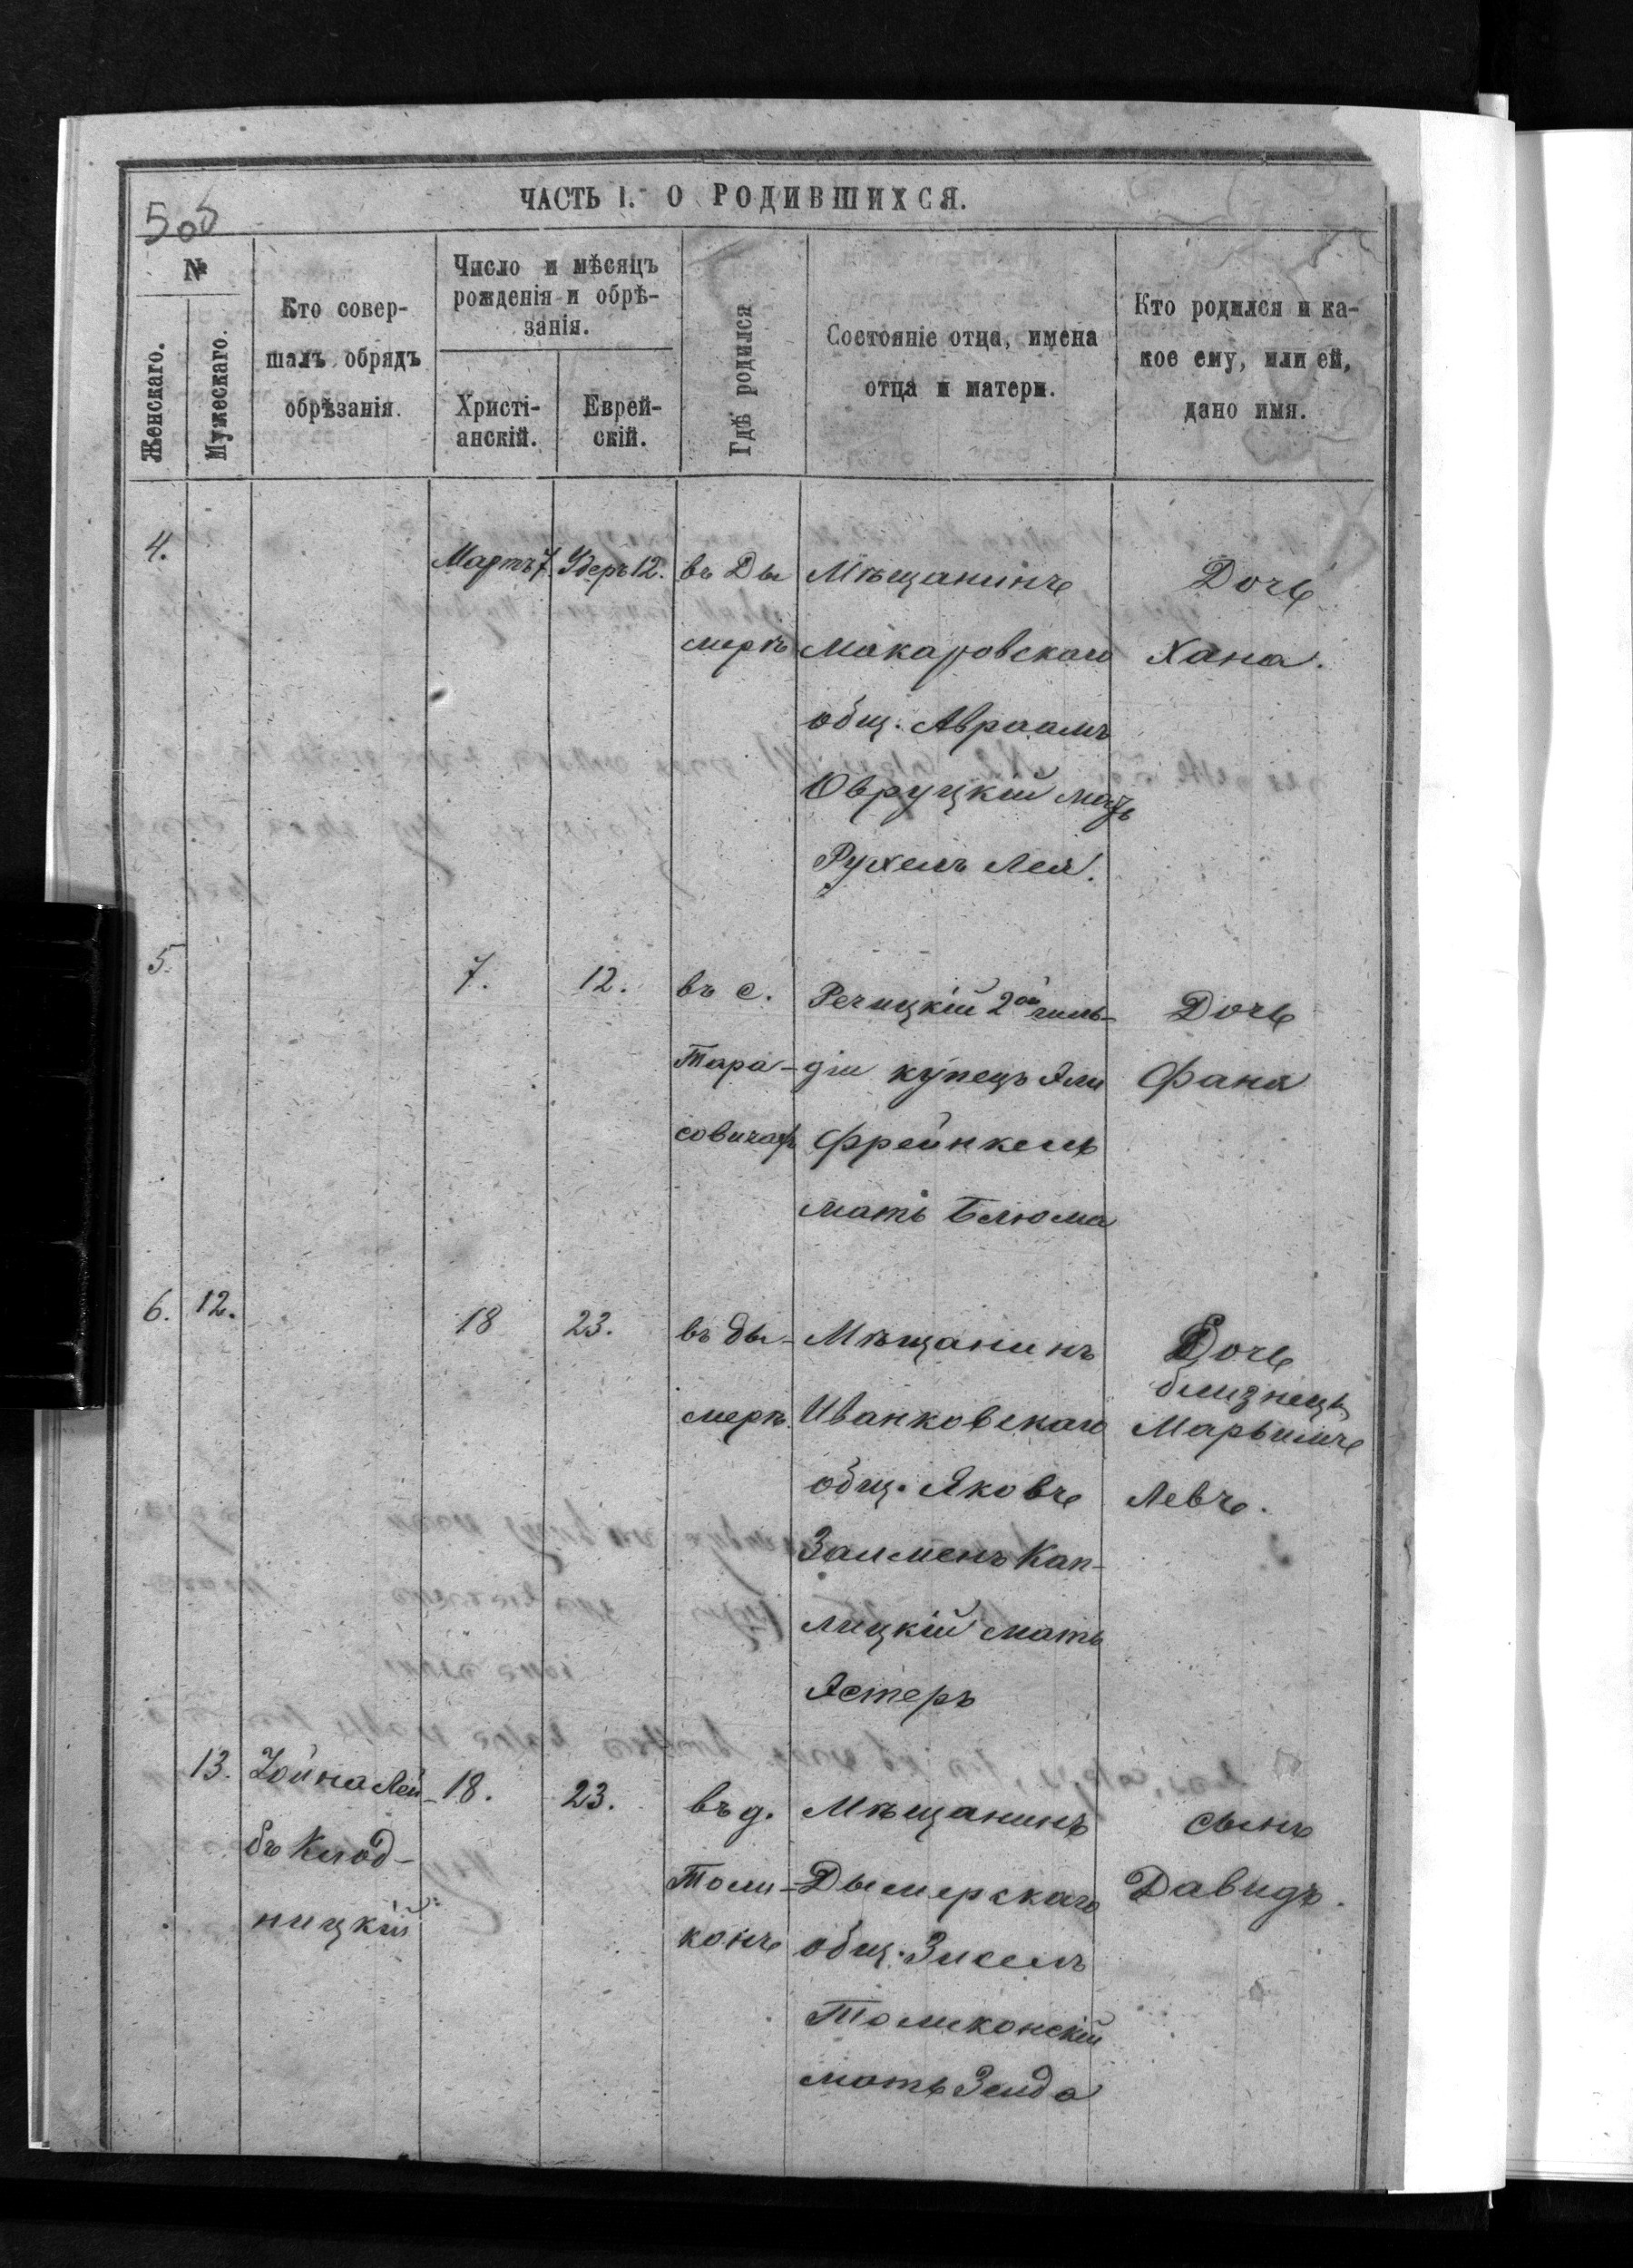 505
ЧАСТЬ I. О РОДИВШИХСЯ.
№
Женскаго.
Мужескаго.
Кто совершалъ обрядъ обрѣзанія.
Число и мѣсяцъ рожденія и обрѣзанія.
Христі-
анскій.
Еврей-
скій.
Гдѣ родился
Состояніе отца, имена
отца и матери.
Кто родился и ка-
кое ему, или ей,
дано имя.
4.
Мартъ 7.
Удеръ 12.
въ Ды
мерѣ
Мѣщанинъ
Макаровскаго
общ. Авраамъ
Овруцкій мать
Рухель Лея.
Дочь
Хана.
5.
7.
12.
въ с.
Тара-
совичахъ
Речицкій 2ой гиль-
діи купецъ Эли
Фрейнкель
мать Блюма
Дочь
Фаня
6.
12.
18
23.
въ Ды-
мерѣ
Мѣщанинъ
Иванковскаго
общ. Яковъ
Залменъ Кап-
лицкій мать
Эстеръ
Дочь
близнецъ
Марьимъ
Левъ.
13.
Хойна Лей-
бъ Клод-
ницкій
18.
23.
въ д.
Толи-
конь
Мѣщанинъ
Дымерскаго
общ. Зисель
Толиконскій
мать Зелда
сынъ
Давидъ.